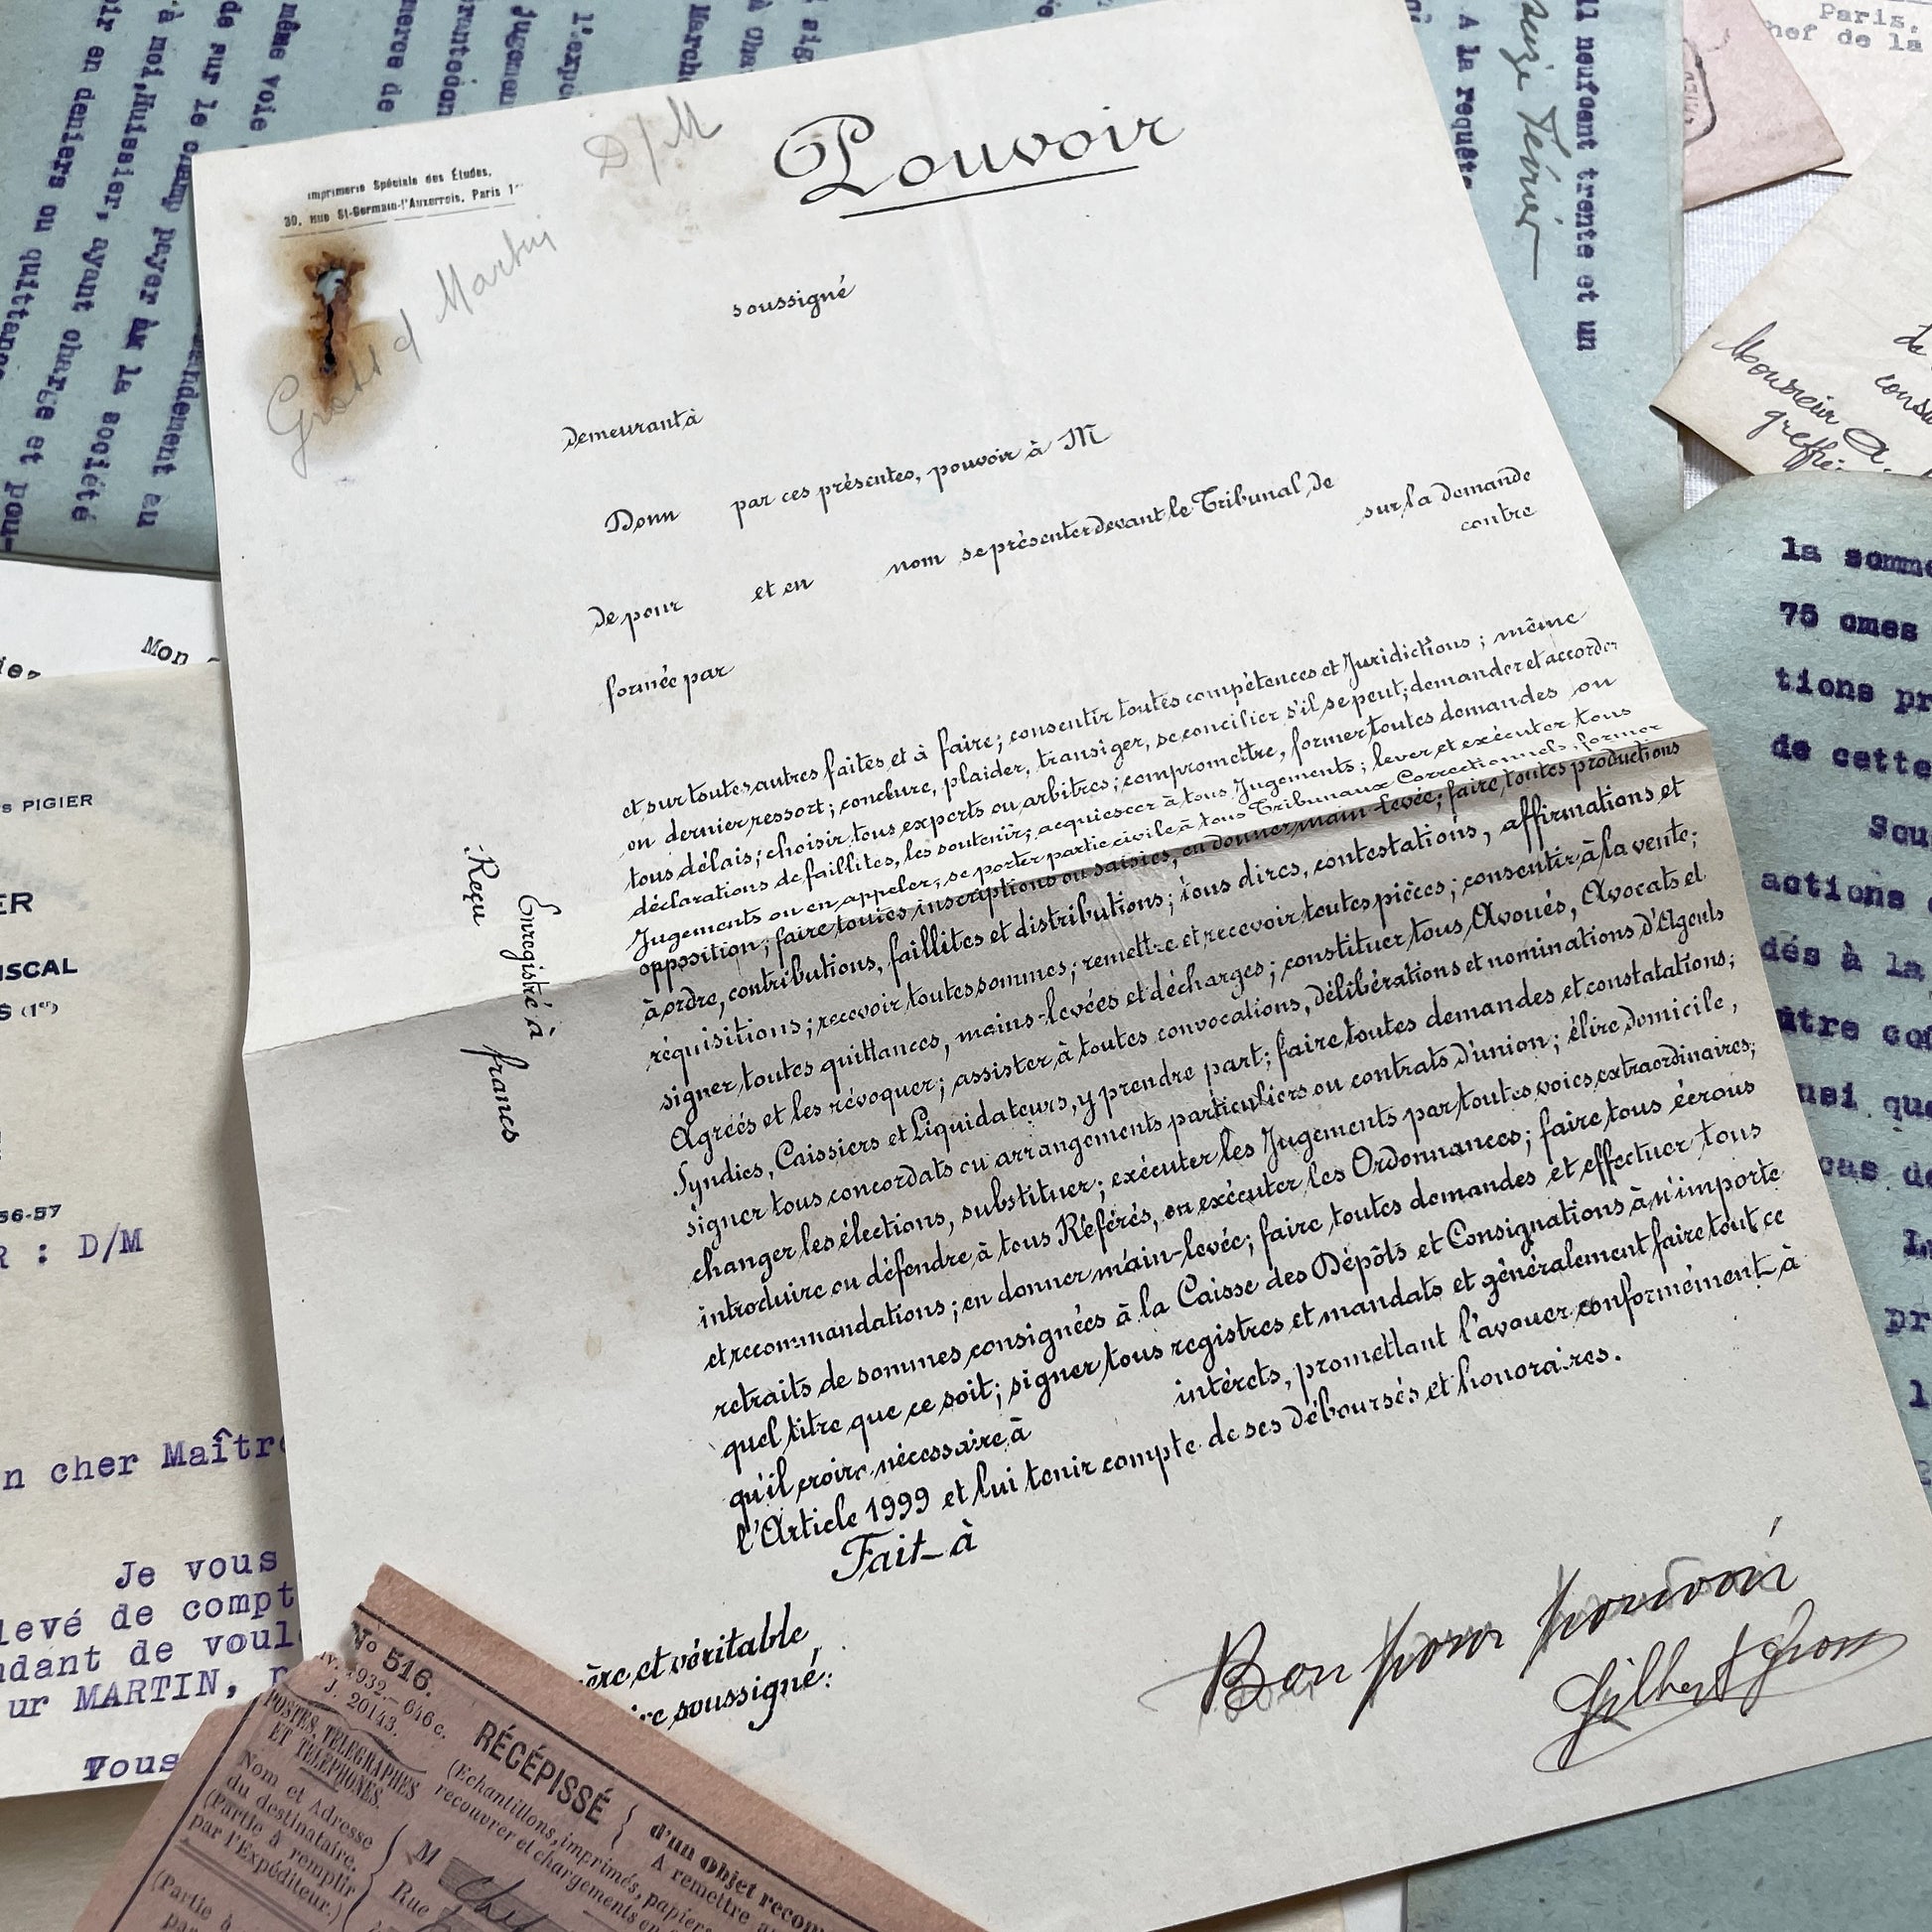 D/M
Pouvoir
Imprimerie Spéciale des Études,
30, Rue St-Germain-l'Auxerrois, Paris 1er
Gross d Martin
soussigné
demeurant à
Donn par ces présentes, pouvoir à M
de pour et en nom se présenter devant le Tribunal de sur la demande
formée par contre
et sur toutes autres faites et à faire; consentir toutes compétences et Juridictions; même
en dernier ressort; conclure, plaider, transiger, se concilier s'il se peut; demander et accorder
tous délais; choisir tous experts ou arbitres; compromettre, former toutes demandes ou
déclarations de faillites, les soutenir; acquiescer à tous Jugements; lever et exécuter tous
Jugements ou en appeler; se porter partie civile à tous Tribunaux Correctionnels, former
opposition; faire toutes inscriptions ou saisies, en donner main-levée; faire toutes productions
à ordre, contributions, faillites et distributions; tous dires, contestations, affirmations et
réquisitions; recevoir toutes sommes; remettre et recevoir toutes pièces; consentir à la vente;
signer toutes quittances, mains-levées et décharges; constituer tous Avoués, Avocats et
Agréés et les révoquer; assister à toutes convocations, délibérations et nominations d'Agents
Syndics, Caissiers et Liquidateurs, y prendre part; faire toutes demandes et constatations;
signer tous concordats ou arrangements particuliers ou contrats d'union; élire domicile,
changer les élections, substituer; exécuter les Jugements par toutes voies extraordinaires;
introduire ou défendre à tous Référés, en exécuter les Ordonnances; faire tous écrous
et recommandations; en donner main-levée; faire toutes demandes et effectuer tous
retraits de sommes consignées à la Caisse des Dépôts et Consignations à n'importe
quel titre que ce soit; signer tous registres et mandats et généralement faire tout ce
qu'il croira nécessaire à intérêts, promettant l'avouer conformément à
l'Article 1999 et lui tenir compte de ses déboursés et honoraires.
Fait à
Enregistré à
Reçu francs
Bon pour pouvoir
Gilbert Gross
ère et véritable
ire soussigné:
No 516.
1932.- 646 c.
J. 20143.
POSTES, TÉLÉGRAPHES
ET TÉLÉPHONES.
RÉCÉPISSÉ
(Echantillons, imprimés, papiers
recouvrer et chargements en
d'un objet recom
A remettre au
Nom et Adresse
du destinataire.
(Partie à remplir
par l'Expéditeur.)
M
Rue
(Partie à
même voie
de sur le champ payer à la société
à moi, Huissier, ayant charge et pou-
ir en deniers ou quittance
jugemen
l'expé
A la requête
il neufcent trente et un
seize Février
Paris,
hef de la
Monsieur
greffi
la somme
75 cmes
tions pr
de cette
Sou
actions
dés à la
utre co
nsi que
cas de
pr
Mon
s PIGIER
ER
ISCAL
S (1er)
56-57
R : D/M
n cher Maître
Je vous
levé de compt
ndant de voul
ur MARTIN,
Vous